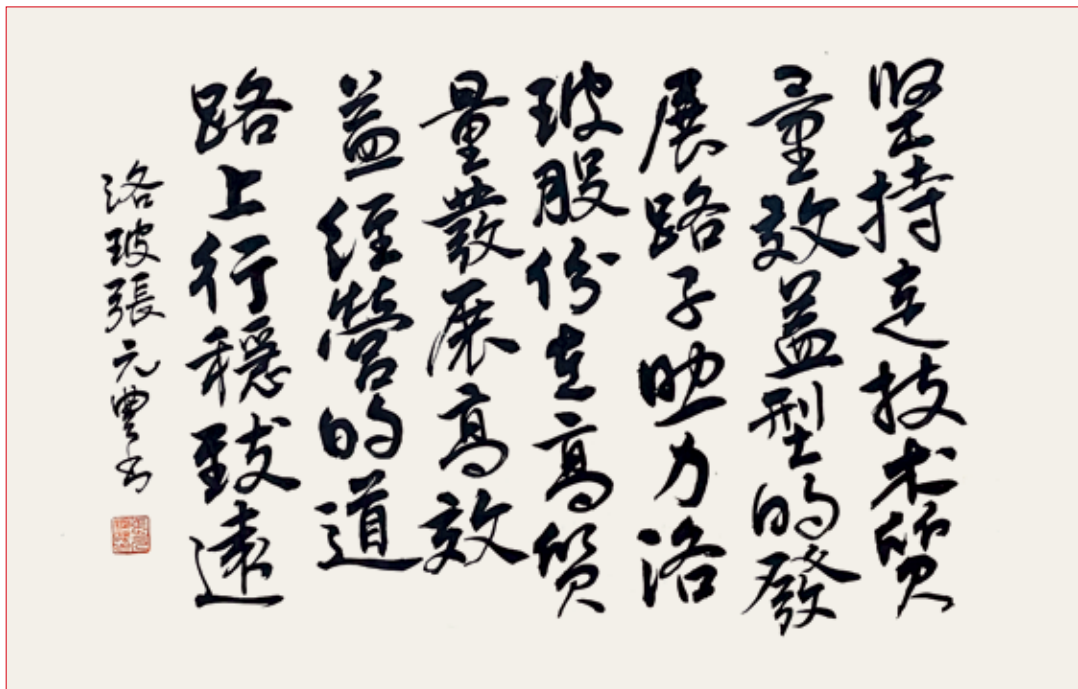 坚持走技术质
量效益型的發
展路子助力洛
玻股份在高質
量發展高效
益经营的道
路上行穩致遠
洛玻張元豐书